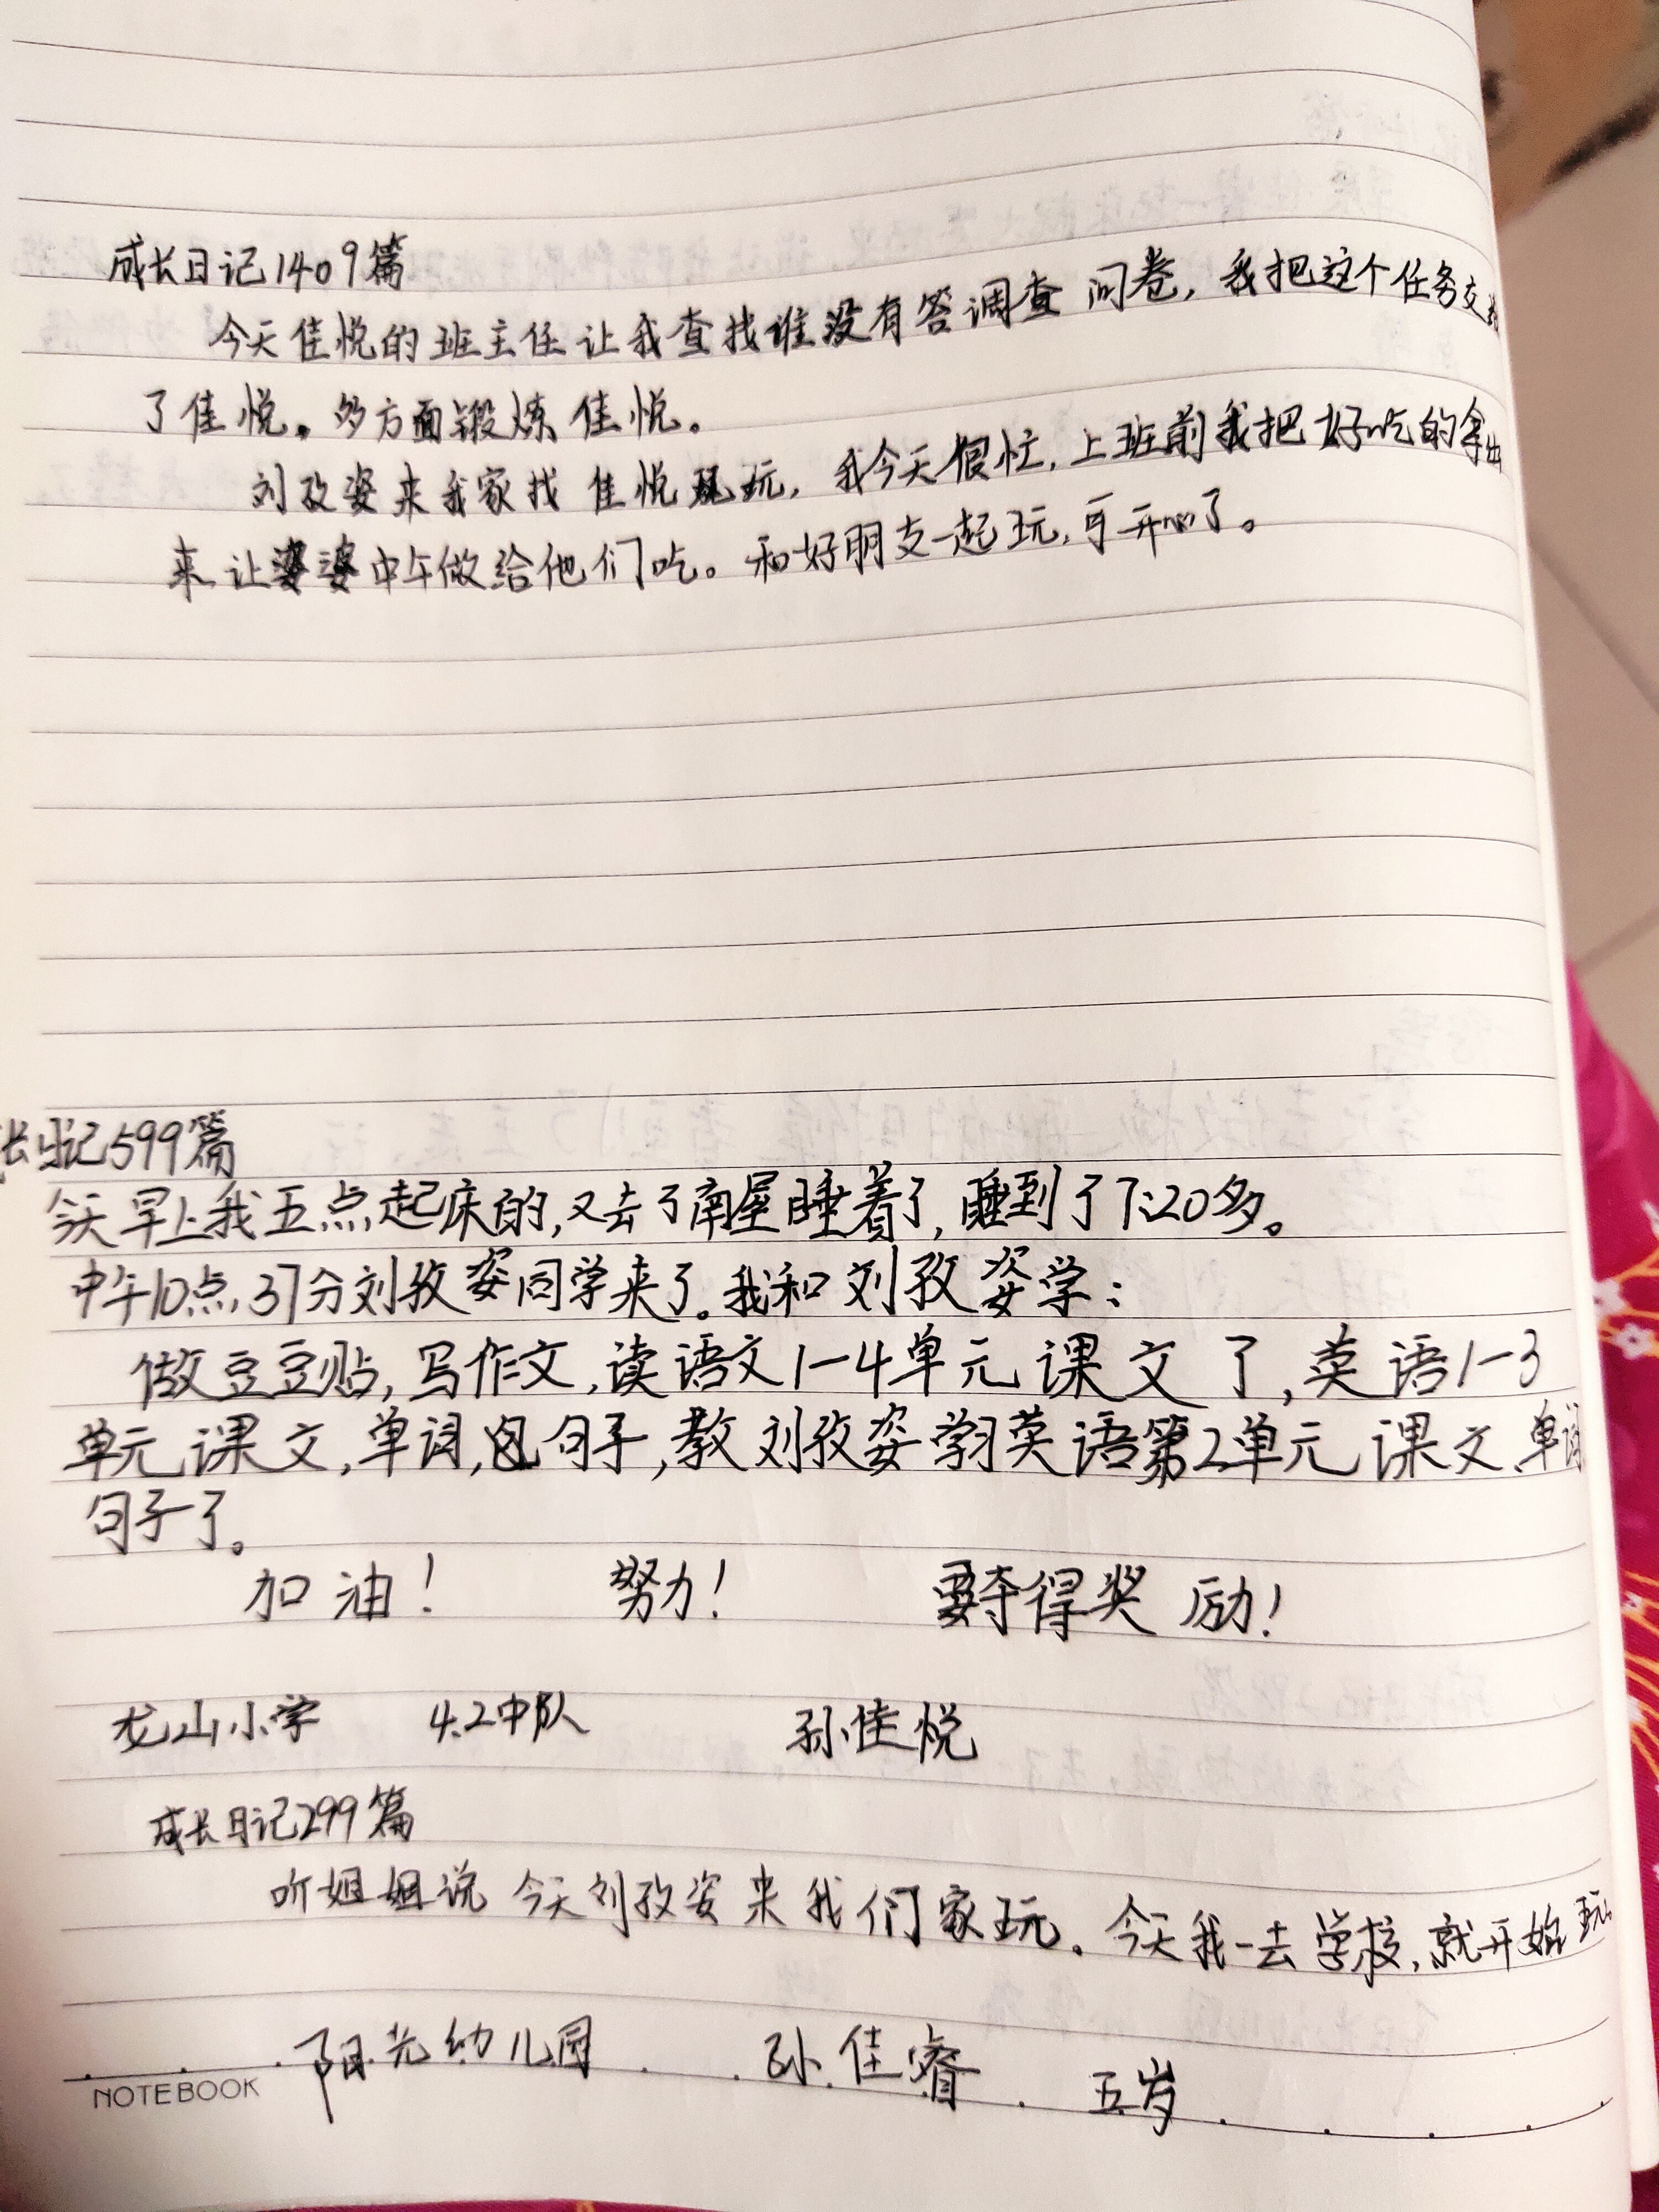 成长日记1409篇
今天佳悦的班主任让我查找谁没有答调查问卷，我把这个任务交给
了佳悦。多方面锻炼佳悦。
刘孜姿来我家找佳悦玩，我今天很忙，上班前我把好吃的拿出
来让婆婆中午做给他们吃。和好朋友一起玩，可开心了。
长日记599篇
今天早上我五点起床的，又去了南屋睡着了，睡到了7:20多。
中午10点，37分刘孜姿同学来了。我和刘孜姿学：
做豆豆贴，写作文，读语文1-4单元课文了，英语1-3
单元课文，单词，句子，教刘孜姿学习英语第2单元课文、单词
句子了。
加油！ 努力！ 要夺得奖励！
龙山小学 4.2中队 孙佳悦
成长日记299篇
听姐姐说今天刘孜姿来我们家玩。今天我一去学校，就开始玩
阳光幼儿园 孙佳睿 五岁
NOTEBOOK